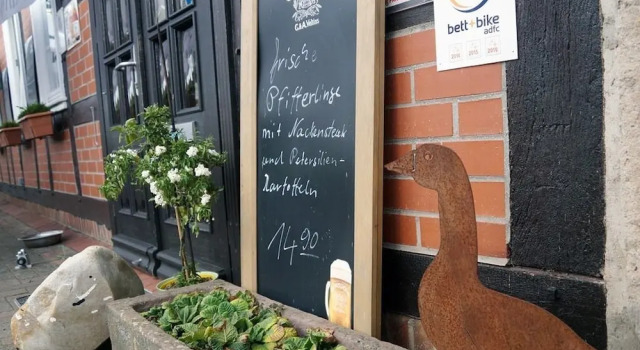 frische
Pfifferlinge
mit Nackensteak
und Petersilien-
Kartoffeln
14,90
bett+bike
adfc